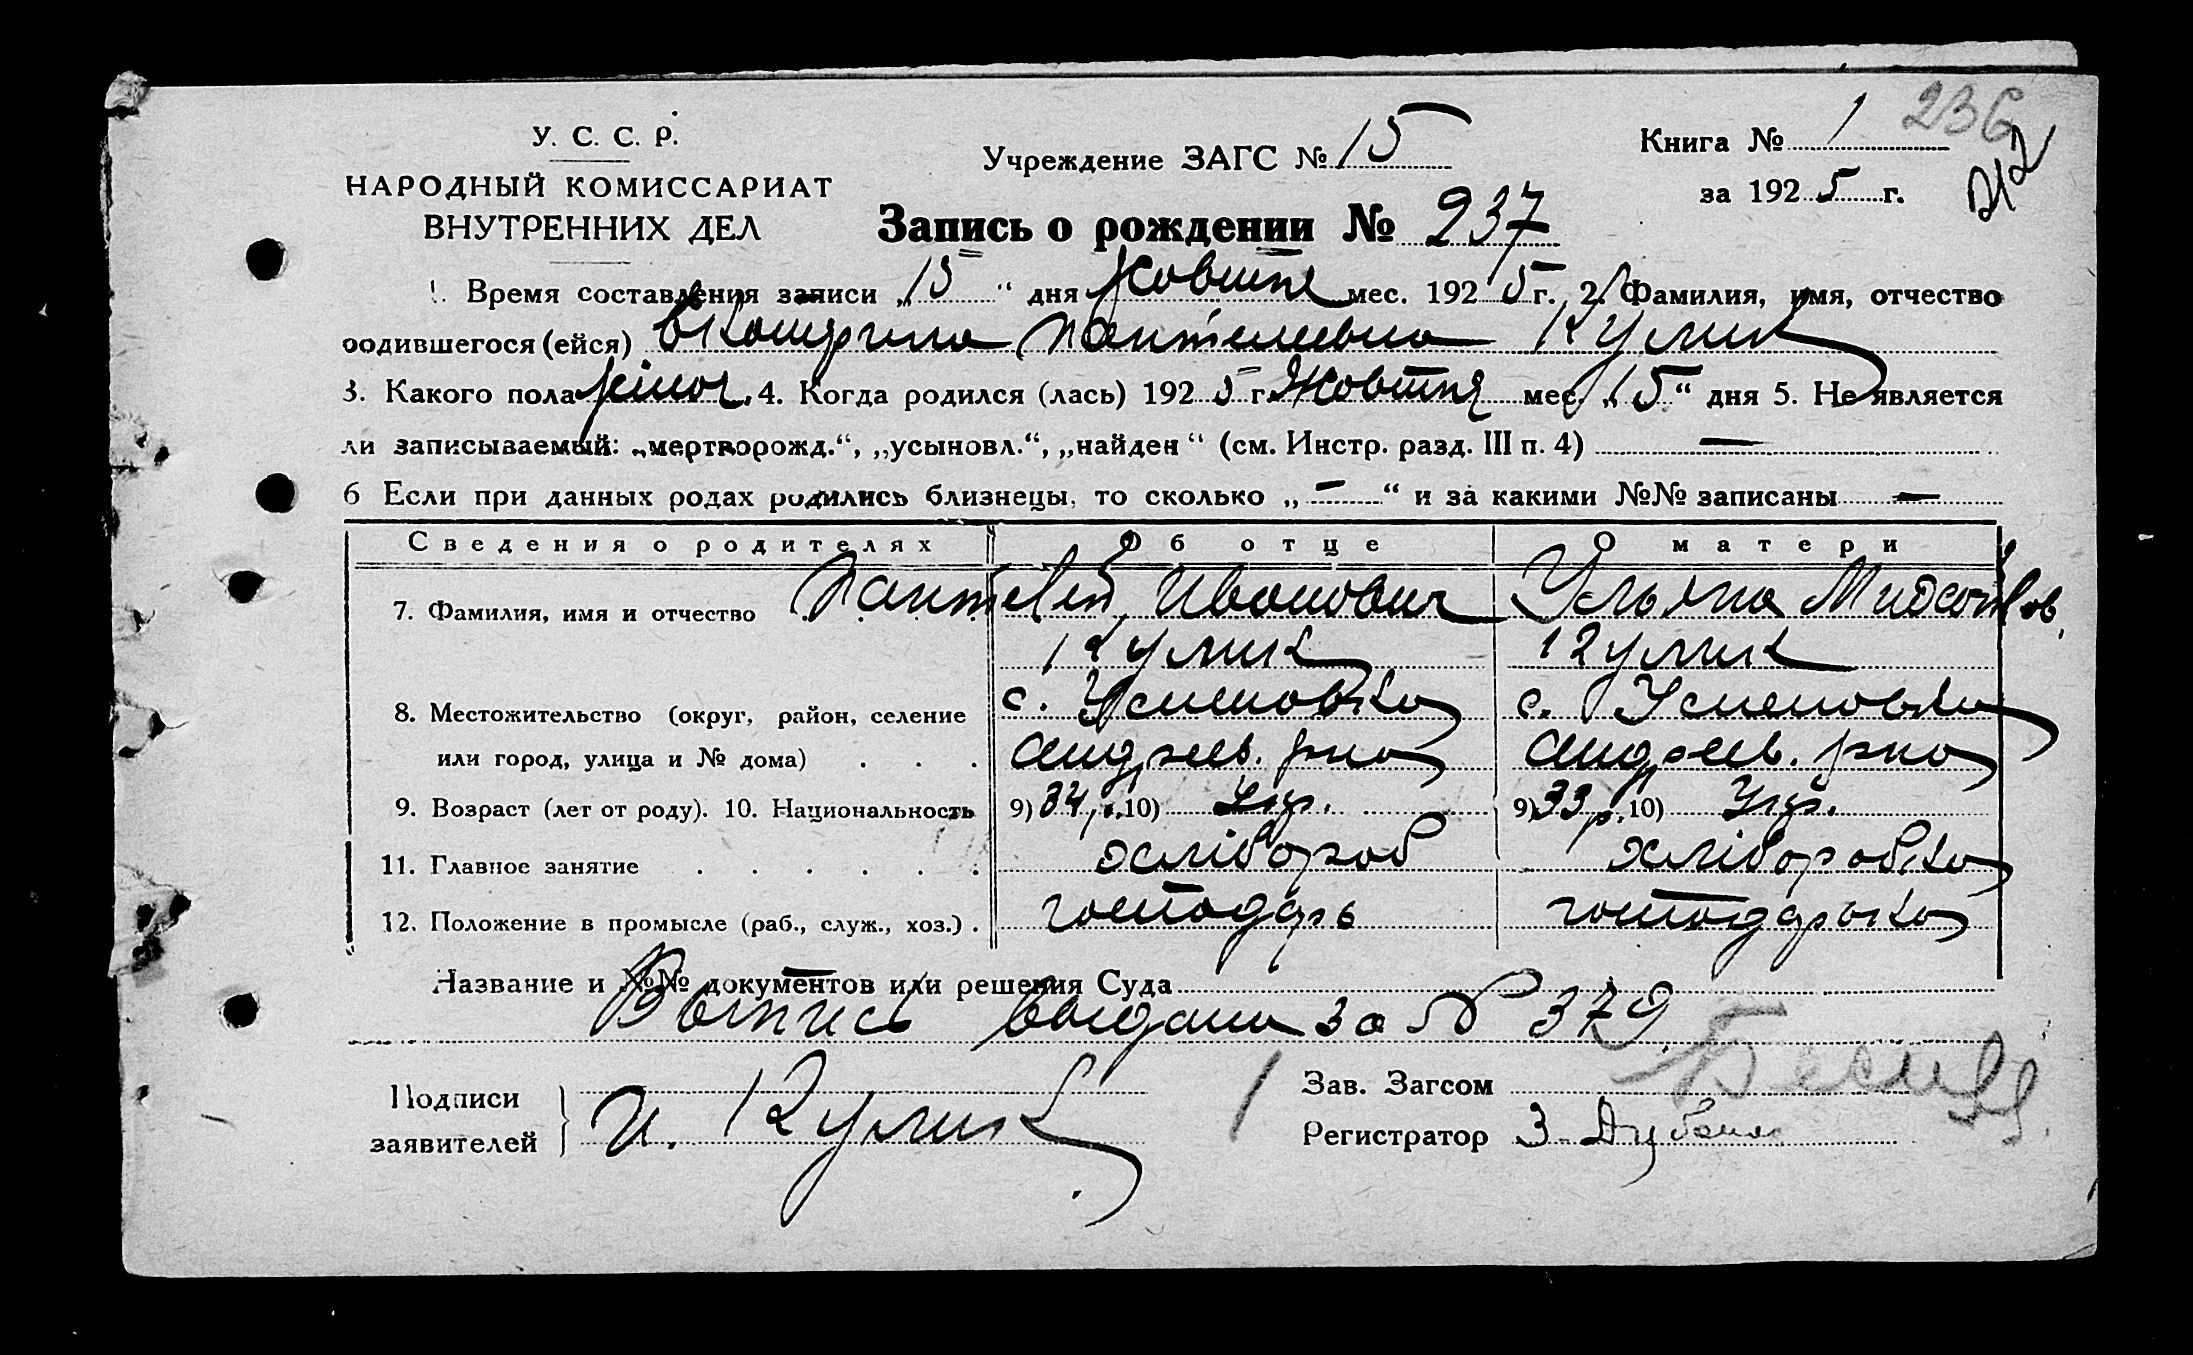 У. С. С. Р.
НАРОДНЫЙ КОМИССАРИАТ
ВНУТРЕННИХ ДЕЛ
Учреждение ЗАГС № 15
Книга № 1
236
за 1925 г.
212
Запись о рождении № 237
1. Время составления записи „15“ дня Жовтня мес. 1925 г. 2. Фамилия, имя, отчество
родившегося (ейся) Екатерина Пантелеевна Кулик
3. Какого пола жіноч. 4. Когда родился (лась) 1925 г. Жовтня мес. „15“ дня 5. Не является
ли записываемый: „мертворожд.“, „усыновл.“, „найден“ (см. Инстр. разд. III п. 4) —
6 Если при данных родах родились близнецы, то сколько „—“ и за какими №№ записаны —
Сведения о родителях Об отце О матери
7. Фамилия, имя и отчество Пантелей Иванович Ульяна
Кулик Кулик
8. Местожительство (округ, район, селение с. Успеновка с. Успеновка
или город, улица и № дома) Андреев. р-на Андреев. р-на
9. Возраст (лет от роду). 10. Национальность 9) 34 р. 10) Укр. 9) 33 р. 10) Укр.
11. Главное занятие хлібороб хліборобка
12. Положение в промысле (раб., служ., хоз.) господарь господарька
Название и №№ документов или решения Суда
Выпись выдана за № 379
Подписи
заявителей
И. Кулик
Зав. Загсом
Регистратор З